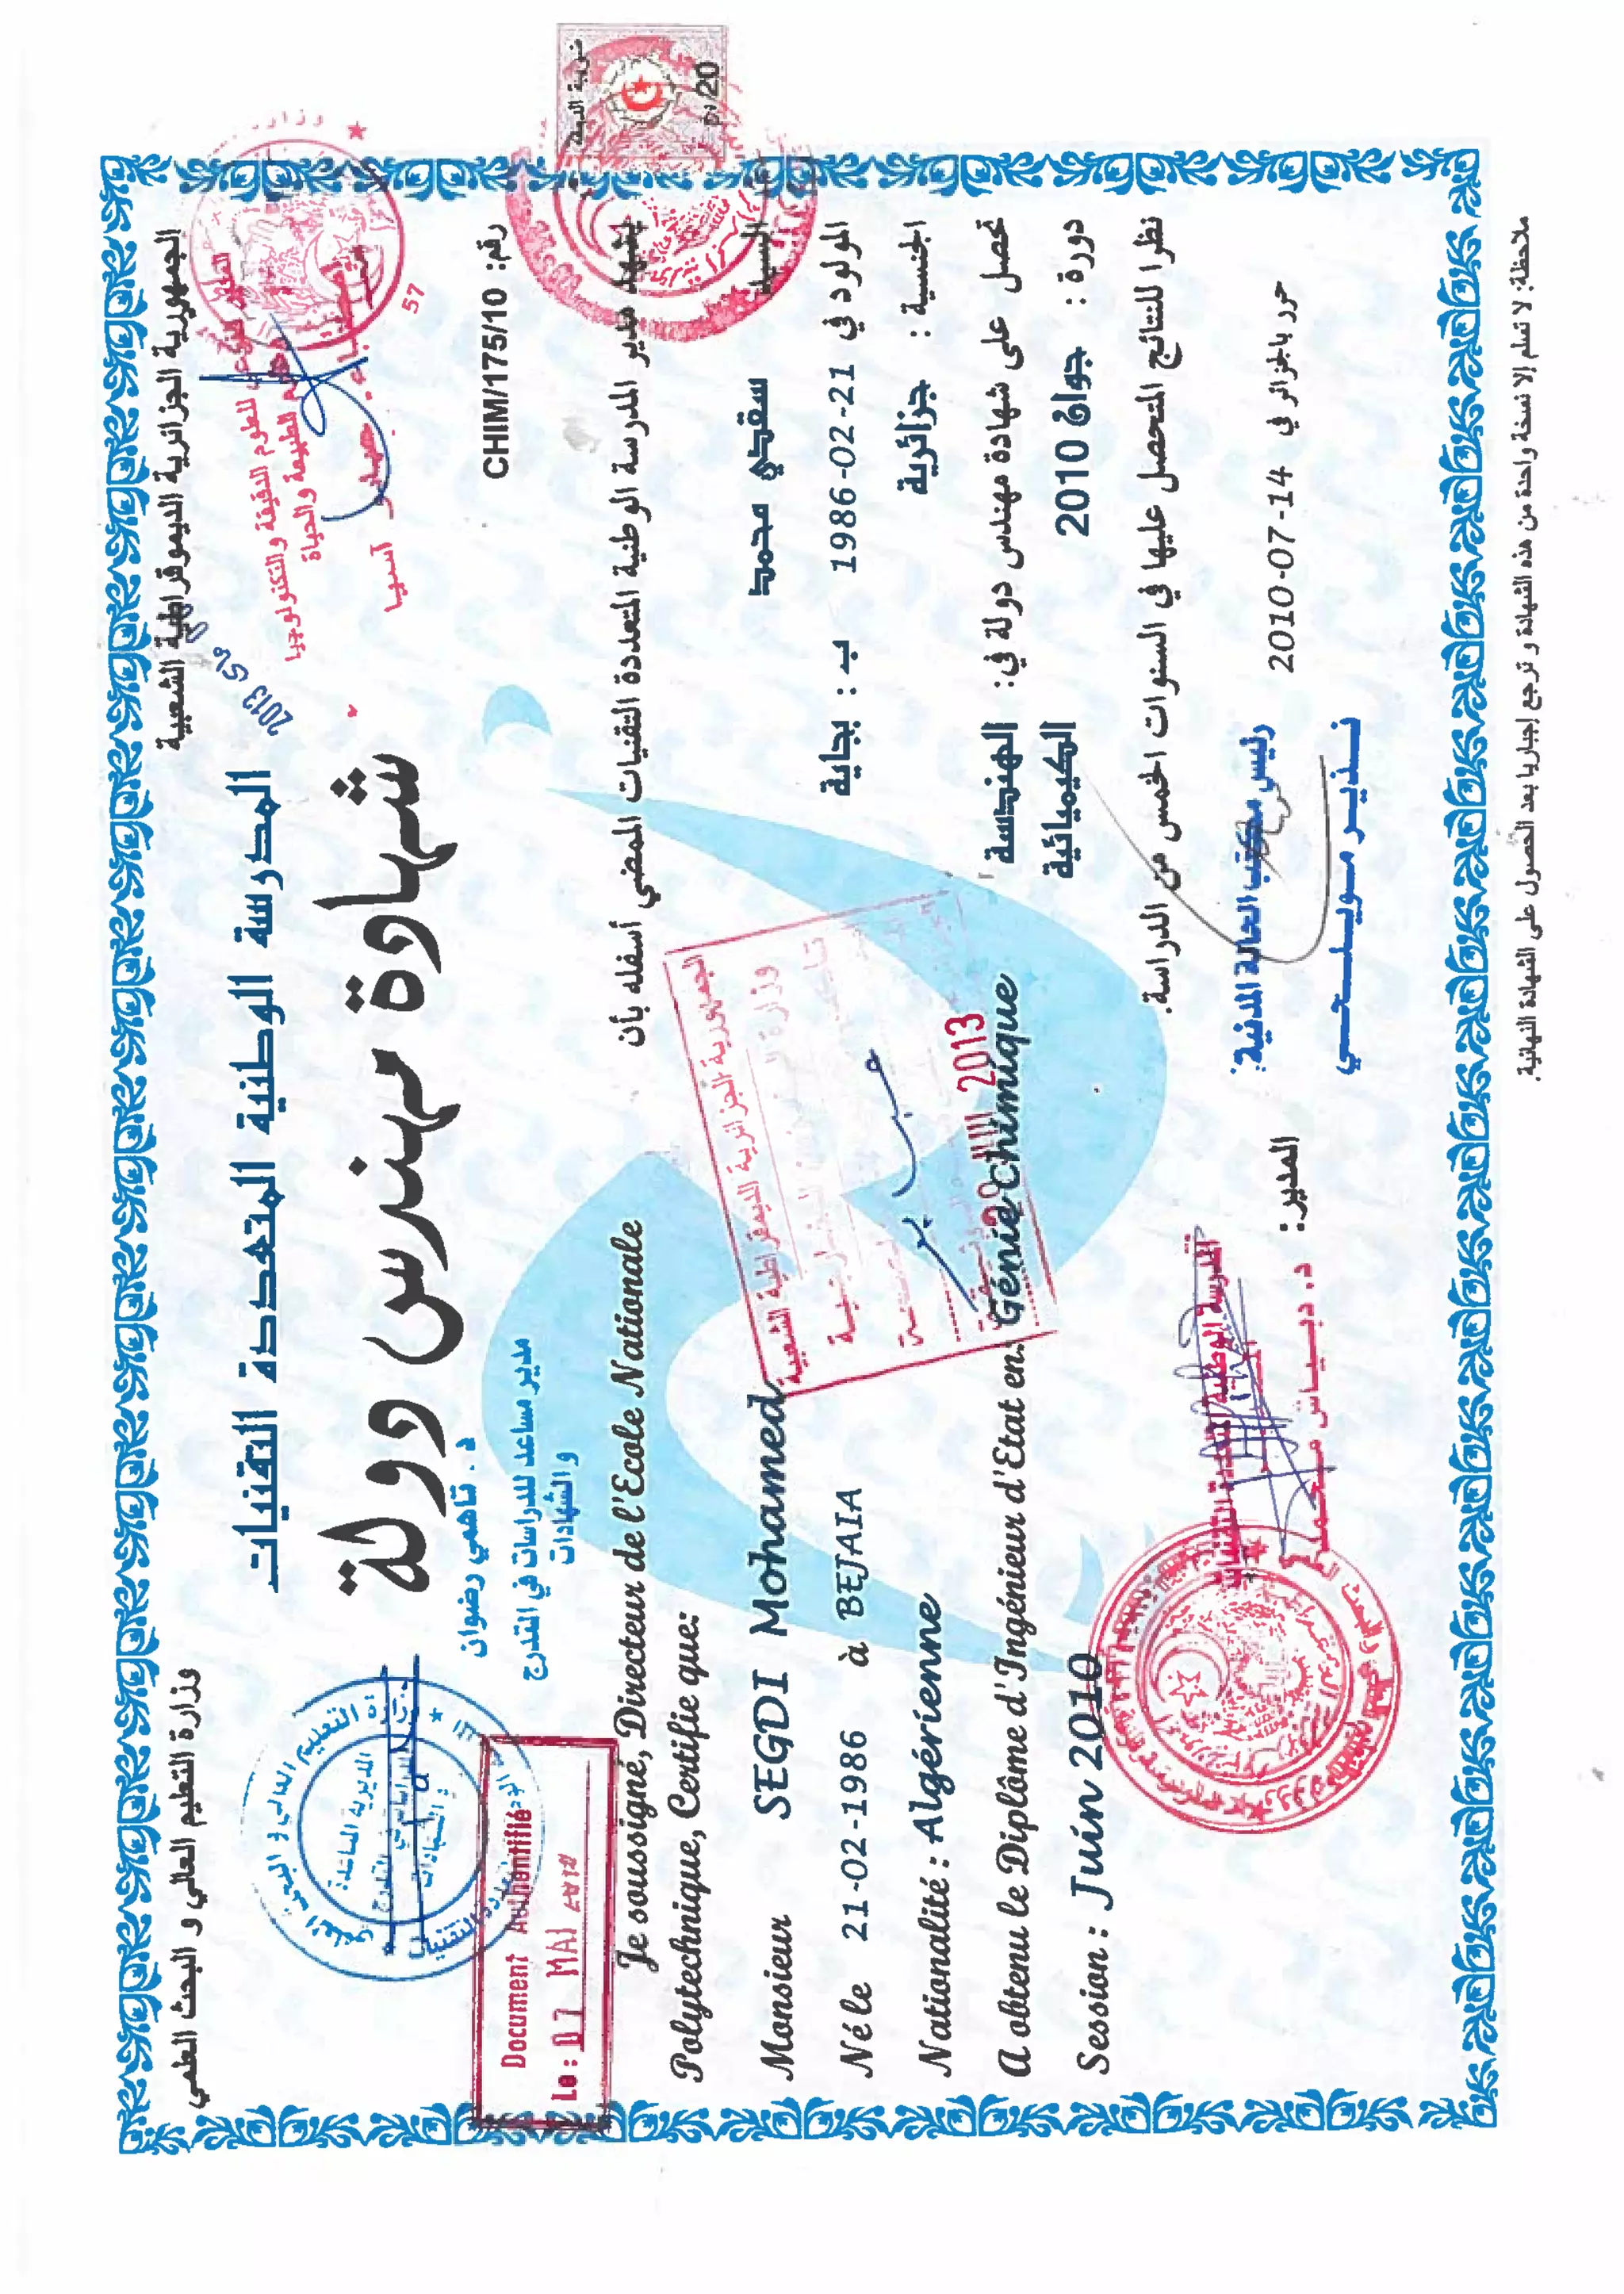 الجمهورية الجزائرية الديموقراطية الشعبية
وزارة التعليم العالي و البحث العلمي
المدرسة الوطنية المتعددة التقنيات
شهادة مهندس دولة
رقم: CHIM/175/10
2013
للعلوم الدقيقة والتكنولوجيا
الطبيعة والحياة
آسيا
57
د. تاهمي رضوان
مدير مساعد للدراسات في التدرج
والشهادات
Document Authentifié
Le : 07 MAI
20/دج
يشهد مدير المدرسة الوطنية المتعددة التقنيات الممضي أسفله بأن
السيد سقدي محمد
المولود في 21-02-1986 ب : بجاية
الجنسية : جزائرية
تحصل على شهادة مهندس دولة في: الهندسة
الكيميائية
دورة : جوان 2010
نظرا للنتائج المتحصل عليها في السنوات الخمس من الدراسة.
Je soussigné, Directeur de l'Ecole Nationale
Polytechnique, Certifie que:
Monsieur SEGDI Mohamed
Né le 21-02-1986 à BEJAIA
Nationalité : Algérienne
A obtenu le Diplôme d'Ingénieur d'Etat en: Génie chimique
Session : Juin 2010
الجمهورية الجزائرية الديمقراطية الشعبية
2013
حرر بالجزائر في 14-07-2010
رئيس مكتب الحالة المدنية:
نـذيـر مويـلـحـي
المدير:
المدرسة الوطنية المتعددة التقنيات
د. دبياش محمد
ملاحظة: لا تسلم إلا نسخة واحدة من هذه الشهادة و ترجع إجباريا بعد الحصول على الشهادة النهائية.